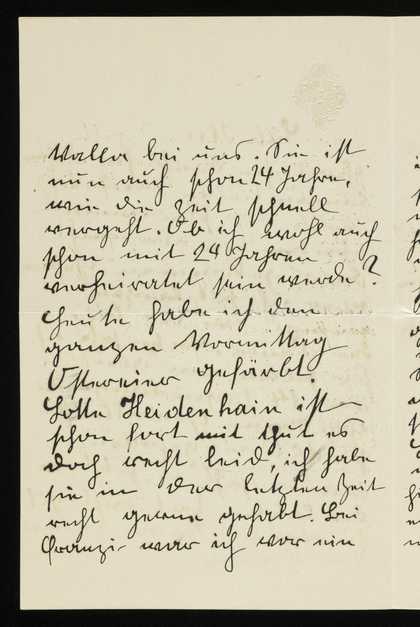 Walla bei uns. Sie ist
nun auch schon 24 Jahre,
wie die Zeit schnell
vergeht. Ob ich wohl auch
schon mit 24 Jahren
verheiratet sein werde?
Heute habe ich den
ganzen Vormittag
Ostereier gefärbt.
Lotte Heidenhain ist
schon fort mit thut es
doch recht leid, ich habe
sie in der letzten Zeit
recht gerne gehabt. Bei
Franzi war ich vor ein